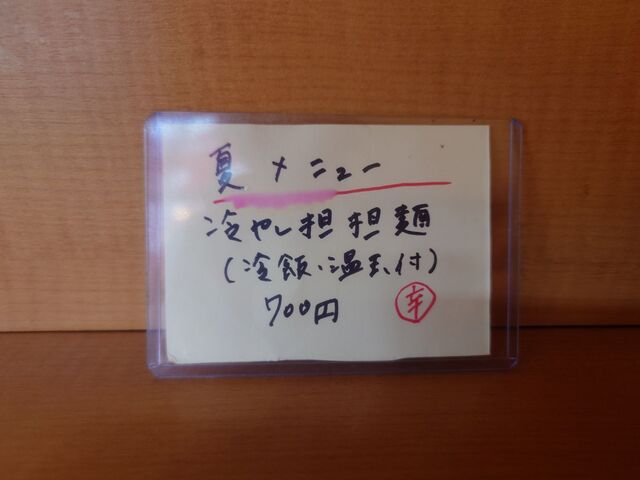 夏メニュー
冷やし担担麺
(冷飯・温玉付)
700円 辛